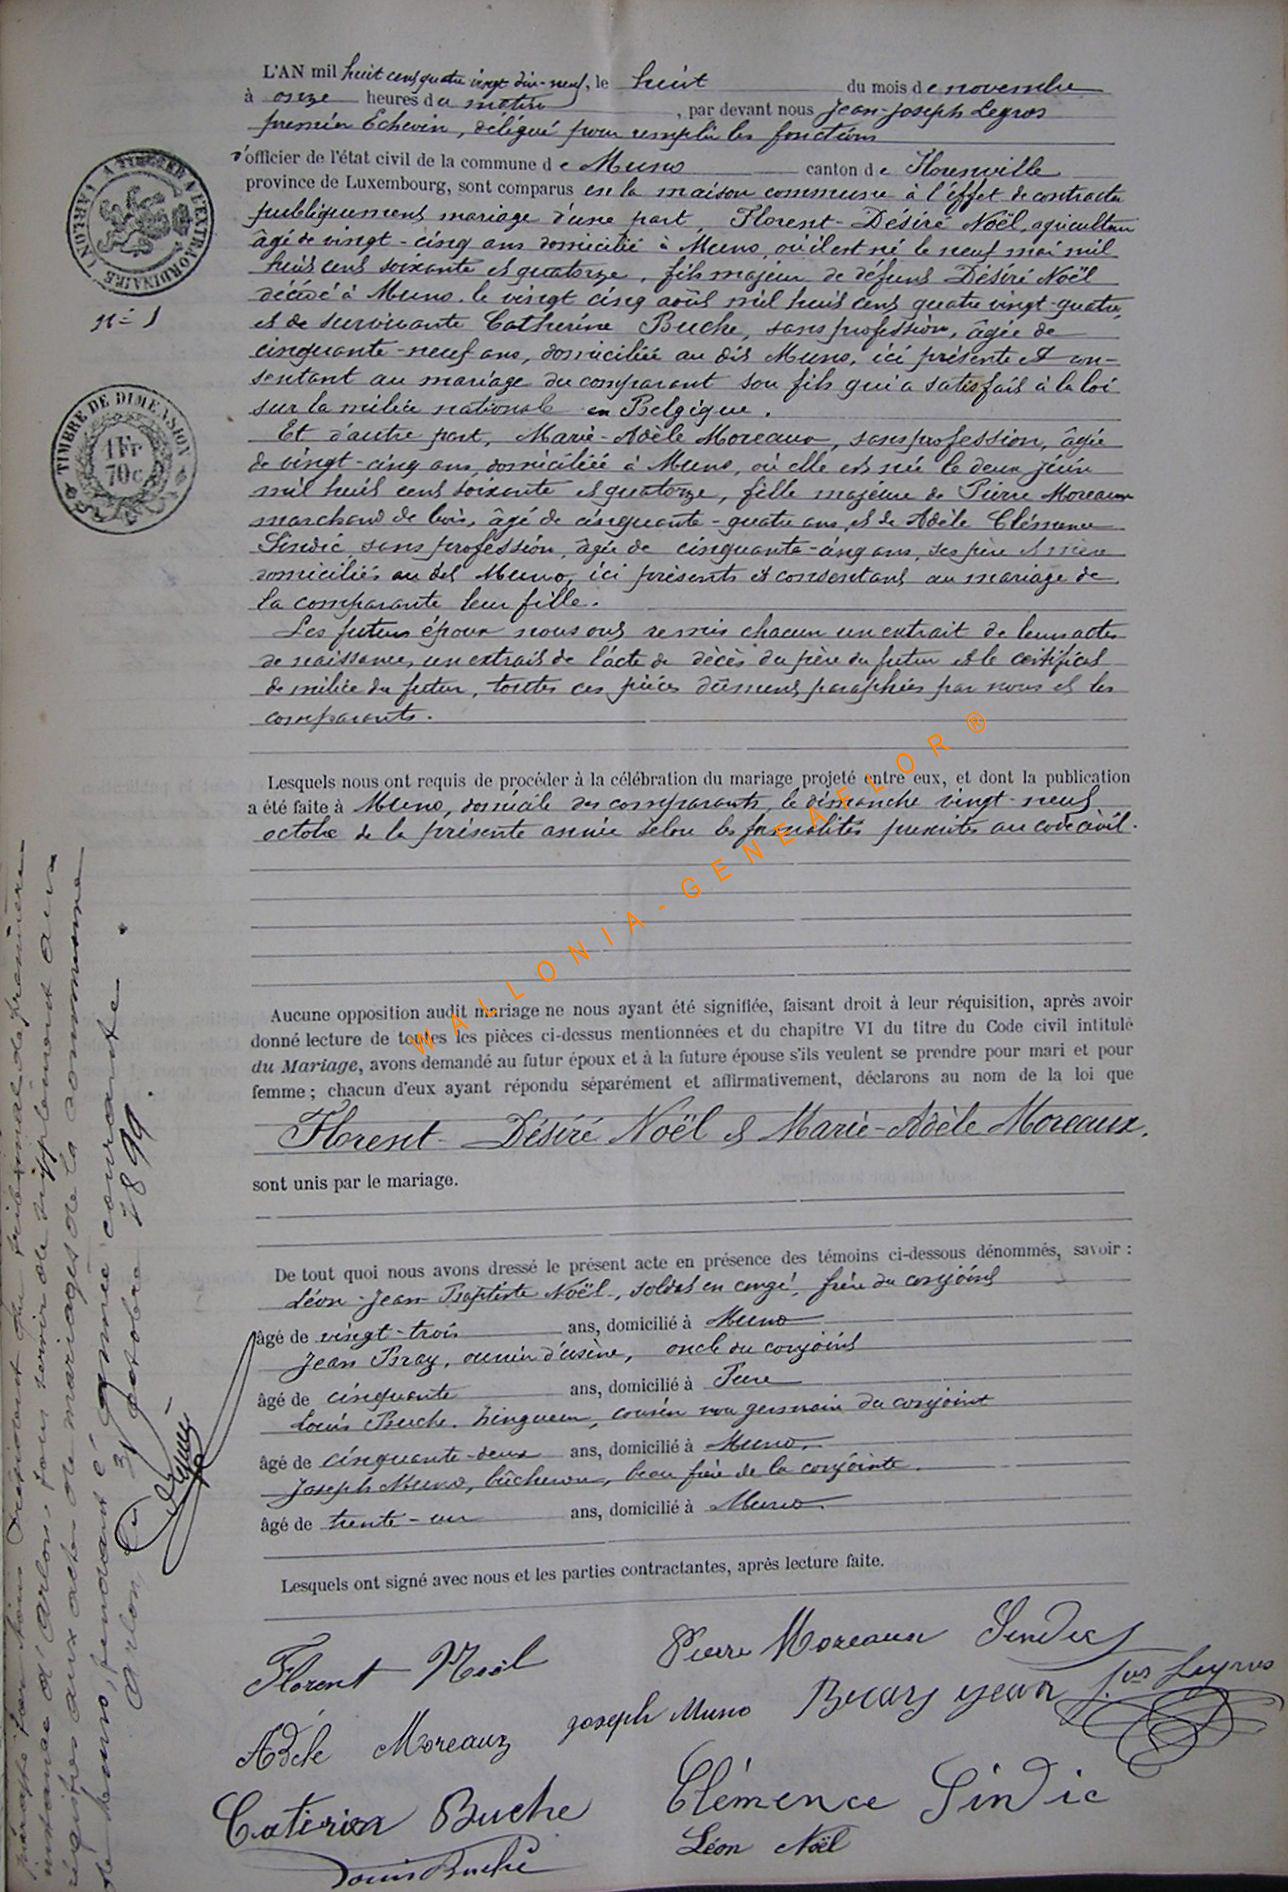 L'AN mil huit cent quatre vingt dix-neuf, le huit du mois de novembre
à onze heures du matin, par devant nous Jean-Joseph Legros
premier Echevin, délégué pour remplir les fonctions
d'officier de l'état civil de la commune de Muno canton de Florenville
province de Luxembourg, sont comparus en la maison commune à l'effet de contracter
publiquement mariage d'une part, Florent-Désiré Noël, agriculteur
âgé de vingt-cinq ans domicilié à Muno, où il est né le neuf mai mil
huit cent soixante et quatorze, fils majeur de défunt Désiré Noël
décédé à Muno, le vingt cinq août mil huit cent quatre vingt-quatre,
et de survivante Catherine Buche, sans profession, âgée de
cinquante-neuf ans, domiciliée au dit Muno, ici présente et con-
sentant au mariage du comparant son fils qui a satisfait à la loi
sur la milice nationale en Belgique.
Et d'autre part, Marie-Adèle Moreaux, sans profession, âgée
de vingt-cinq ans, domiciliée à Muno, où elle est née le deux juin
mil huit cent soixante et quatorze, fille majeure de Pierre Moreaux
marchand de bois, âgé de cinquante-quatre ans, et de Adèle Clémence
Sindic, sans profession, âgée de cinquante-cinq ans, ses père et mère
domiciliés au dit Muno, ici présents et consentant au mariage de
la comparante leur fille.
Les futurs époux nous ont remis chacun un extrait de leurs actes
de naissance, un extrait de l'acte de décès du père du futur et le certificat
de milice du futur, toutes ces pièces dûment paraphées par nous et les
comparants.
Lesquels nous ont requis de procéder à la célébration du mariage projeté entre eux, et dont la publication
a été faite à Muno, domicile des comparants, le dimanche vingt-neuf
octobre de la présente année selon les formalités prescrites au code civil.
Aucune opposition audit mariage ne nous ayant été signifiée, faisant droit à leur réquisition, après avoir
donné lecture de toutes les pièces ci-dessus mentionnées et du chapitre VI du titre du Code civil intitulé
du Mariage, avons demandé au futur époux et à la future épouse s'ils veulent se prendre pour mari et pour
femme ; chacun d'eux ayant répondu séparément et affirmativement, déclarons au nom de la loi que
Florent-Désiré Noël et Marie-Adèle Moreaux.
sont unis par le mariage.
De tout quoi nous avons dressé le présent acte en présence des témoins ci-dessous dénommés, savoir :
Léon-Jean-Baptiste Noël, soldat en congé, frère du conjoint
âgé de vingt-trois ans, domicilié à Muno
Jean Bray, ouvrier d'usine, oncle du conjoint
âgé de cinquante ans, domicilié à
Louis Buche, zingueur, cousin non germain du conjoint
âgé de cinquante-deux ans, domicilié à Muno
Joseph Muno, bûcheron, beau frère de la conjointe.
âgé de trente-un ans, domicilié à Muno
Lesquels ont signé avec nous et les parties contractantes, après lecture faite.
Florent Noël
Pierre Moreaux Sindic
Adèle Moreaux Joseph Muno Jean Jos Legros
Catirien Buche Clémence Sindic
Louis Buche Léon Noël
TIMBRE A L'EXTRAORDINAIRE (ARLON)
N° 1
TIMBRE DE DIMENSION
1 Fr
70c
paraphé par nous Président du tribunal de première
instance d'Arlon, pour servir de supplément aux
registres aux actes de mariages de la commune
de Muno, pendant l'année courante.
Arlon, le 31 octobre 1899.
WALLONIA-GENEAFLOR®